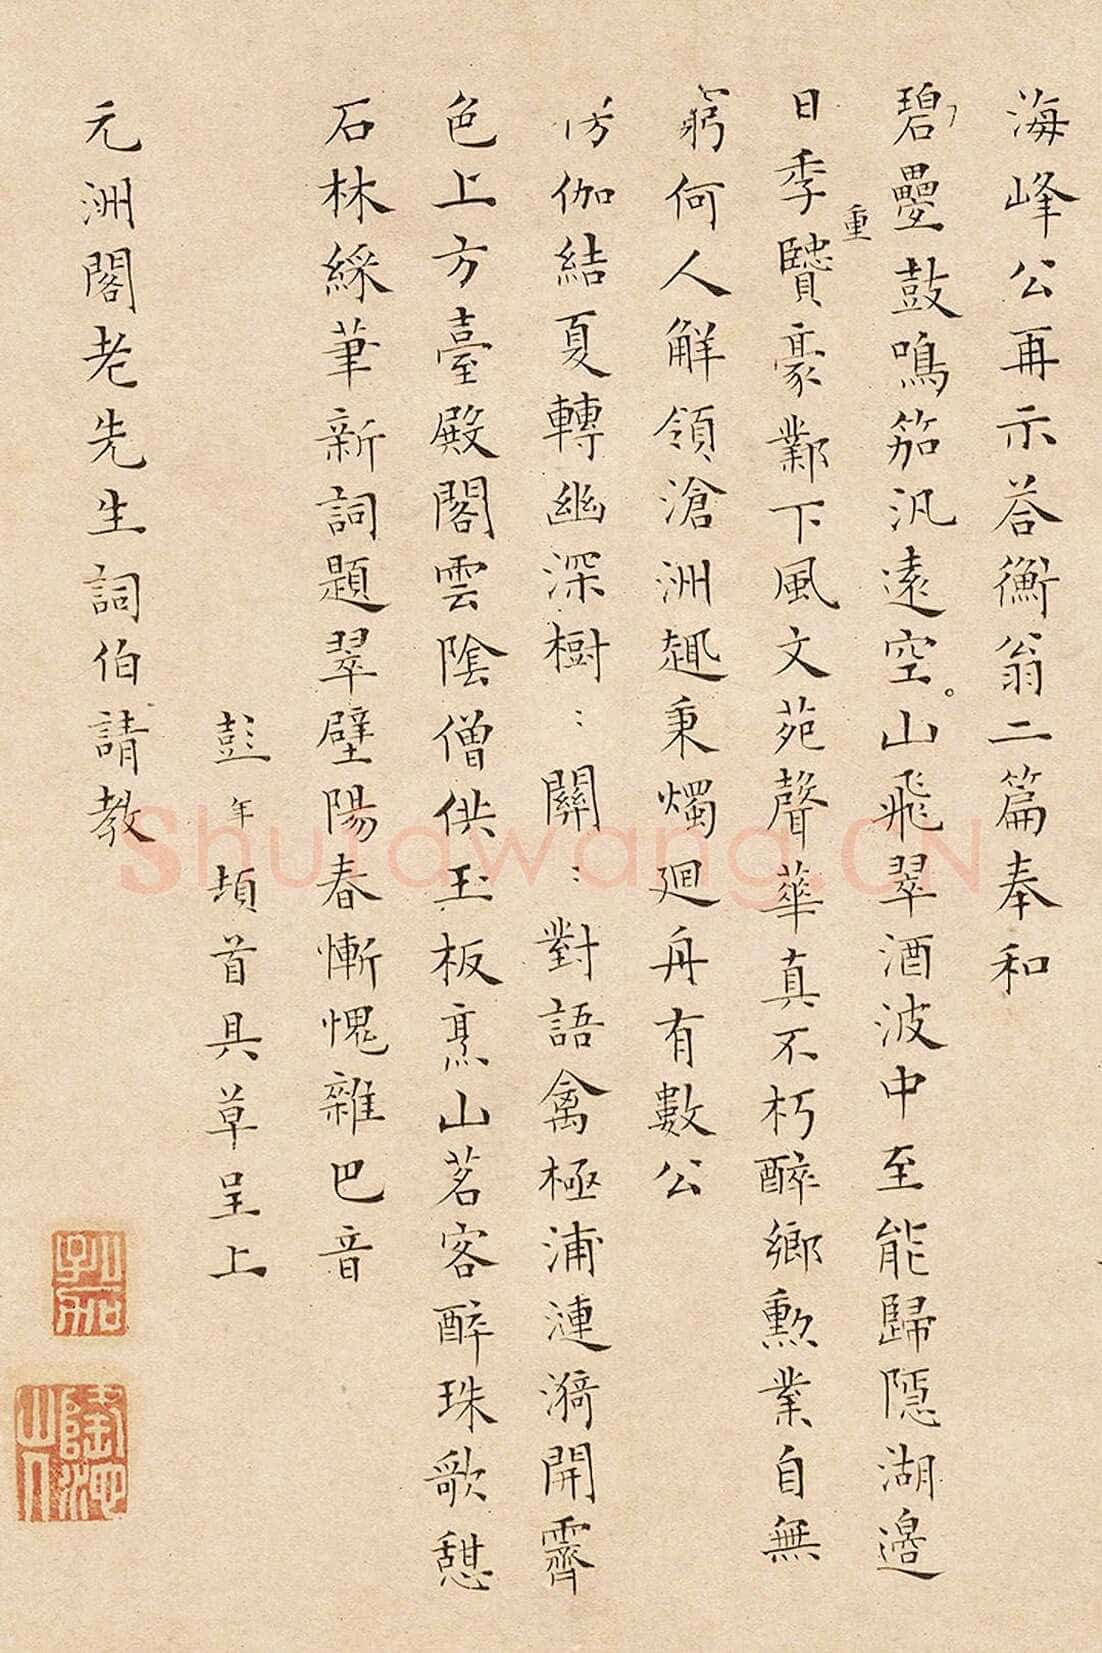 海峰公再示荅衡翁二篇奉和
碧疊鼓鳴笳汎遠空山飛翠酒波中至能歸隱湖邊
日季鷹豪鄴下風文苑聲華真不朽醉鄉勲業自無
重
窮何人解領滄洲趣秉燭廻舟有數公
仿伽結夏轉幽深樹〻關〻對語禽極浦漣漪開霽
色上方臺殿閣雲陰僧供玉板烹山茗客醉珠歌憩
石林綵筆新詞題翠壁陽春慚愧雜巴音
彭年頓首具草呈上
元洲閣老先生詞伯請教
Shufawang.CN